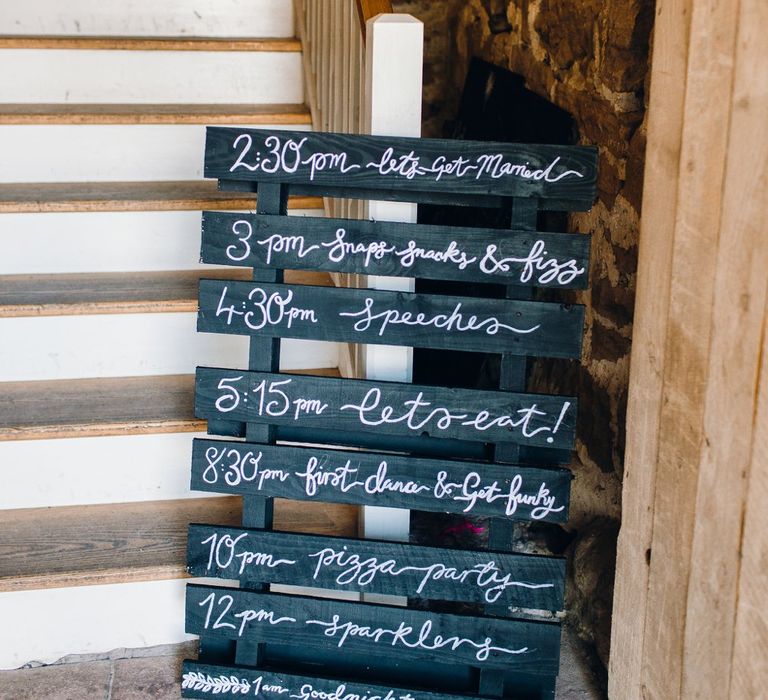 2:30pm lets Get Married
3pm Snaps Snacks & fizz
4:30pm Speeches
5:15pm lets eat!
8:30pm first dance & Get funky
10pm pizza party
12pm Sparklers
1am Goodnight